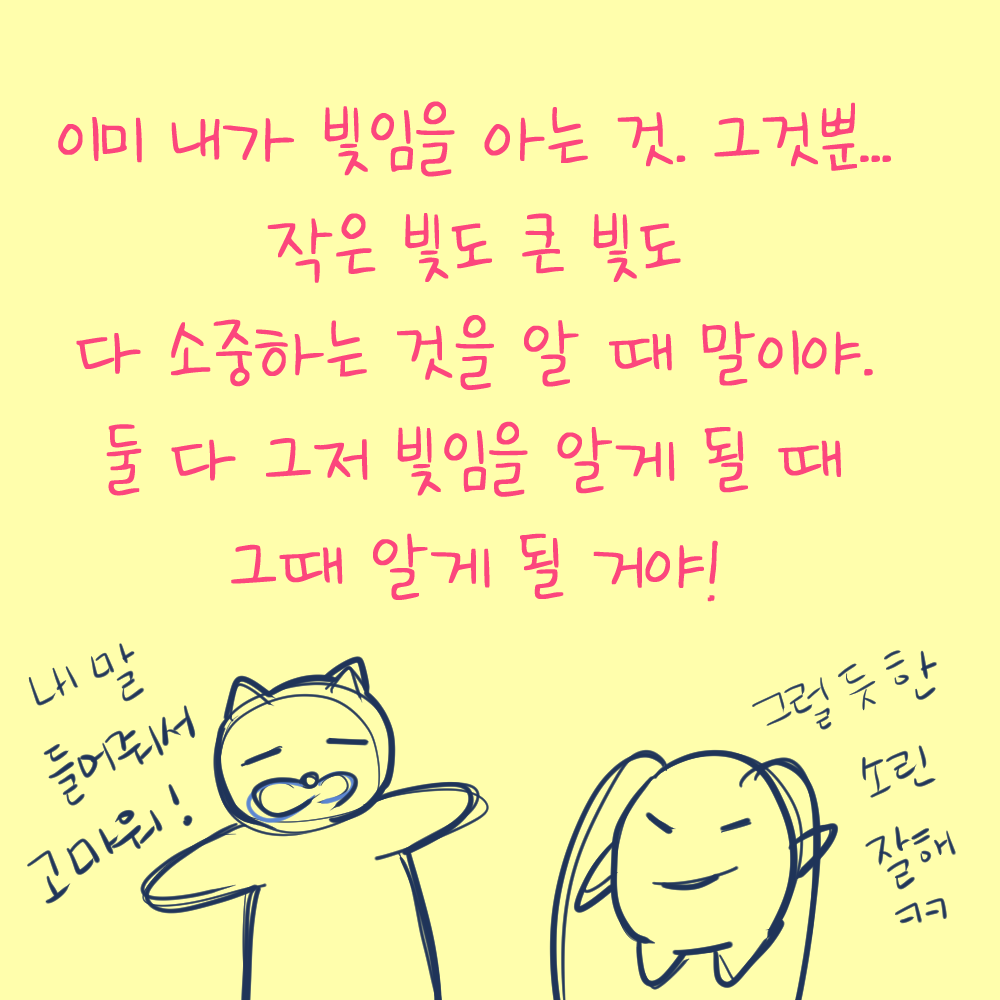 이미 내가 빛임을 아는 것. 그것뿐...
작은 빛도 큰 빛도
다 소중하는 것을 알 때 말이야.
둘 다 그저 빛임을 알게 될 때
그때 알게 될 거야!
내 말
들어줘서
고마워!
그럴듯한
소린
잘해
ㅋㅋ